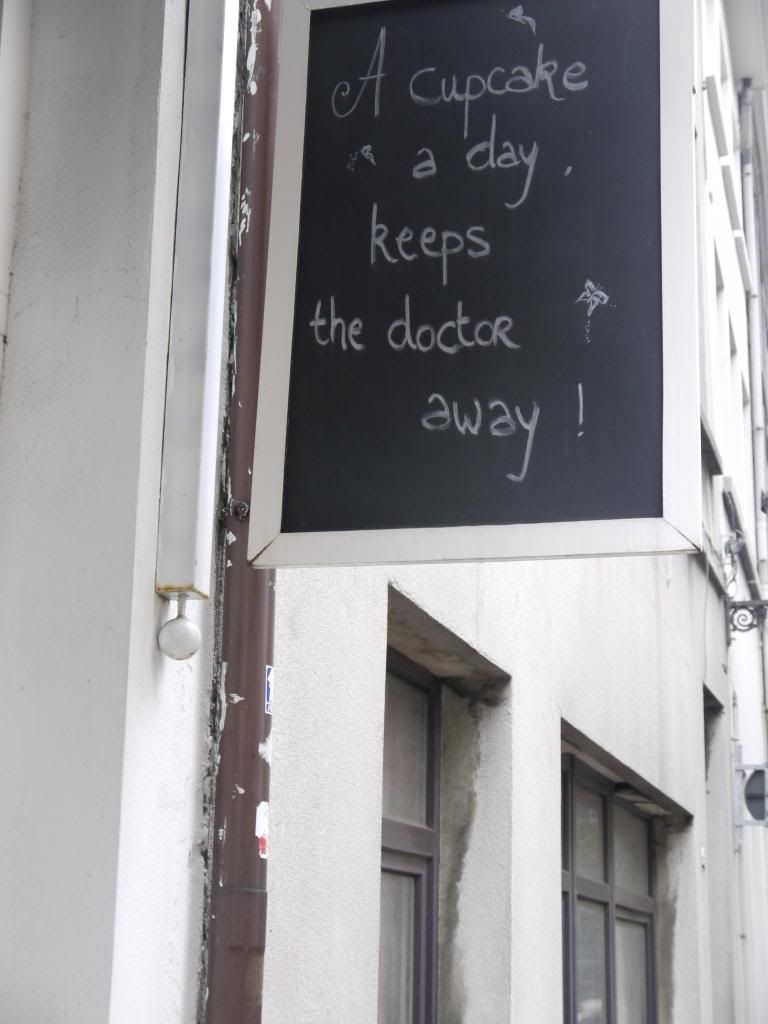 A cupcake
a day,
keeps
the doctor
away!